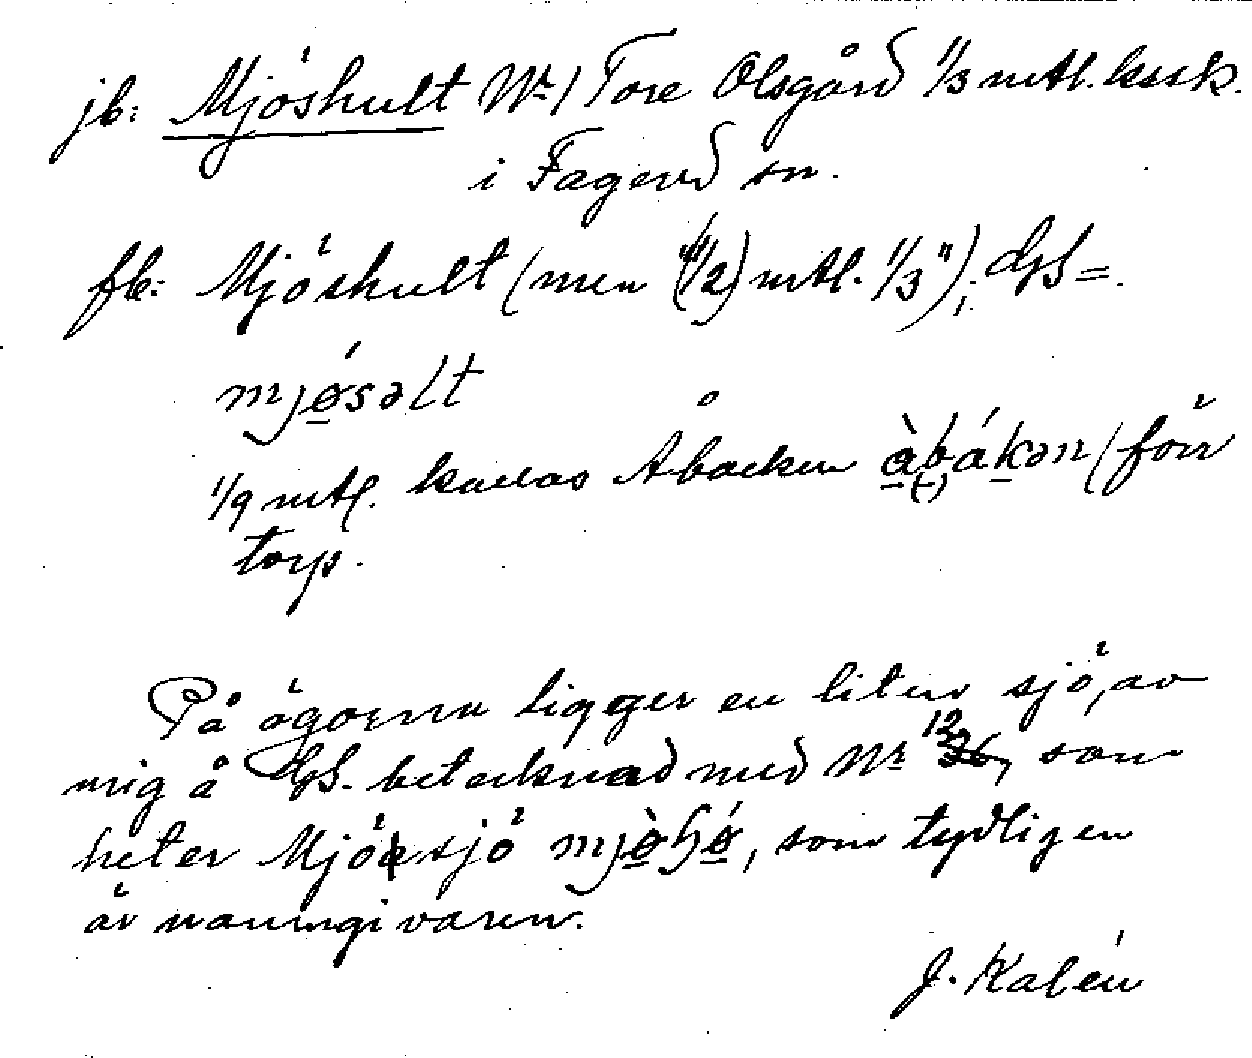 jb: Mjöshult Nr 1 Tore Olsgård 1/3 mtl. krsk.
i Fagered sn.
fb: Mjöshult (men "(1/2) mtl. 1/3"); GS =.
mjǿ̱səlt
1/9 mtl. kallas Åbacken (förr
torp.
På ägorna ligger en liten sjö, av
mig å GS. betecknad med Nr 12, som
heter Mjösjö, som tydligen
är namngivaren.
J. Kalén